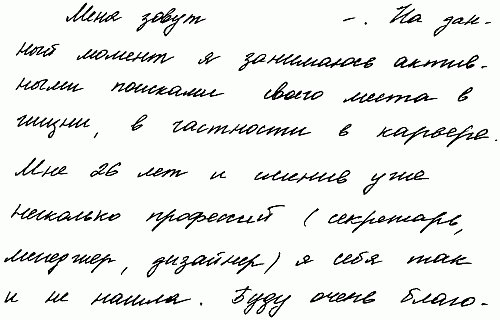 Меня зовут –. На дан-
ный момент я занимаюсь актив-
ными поисками своего места в
жизни, в частности в карьере.
Мне 26 лет и сменив уже
несколько профессий (секретарь,
менеджер, дизайнер) я себя так
и не нашла. Буду очень благо-